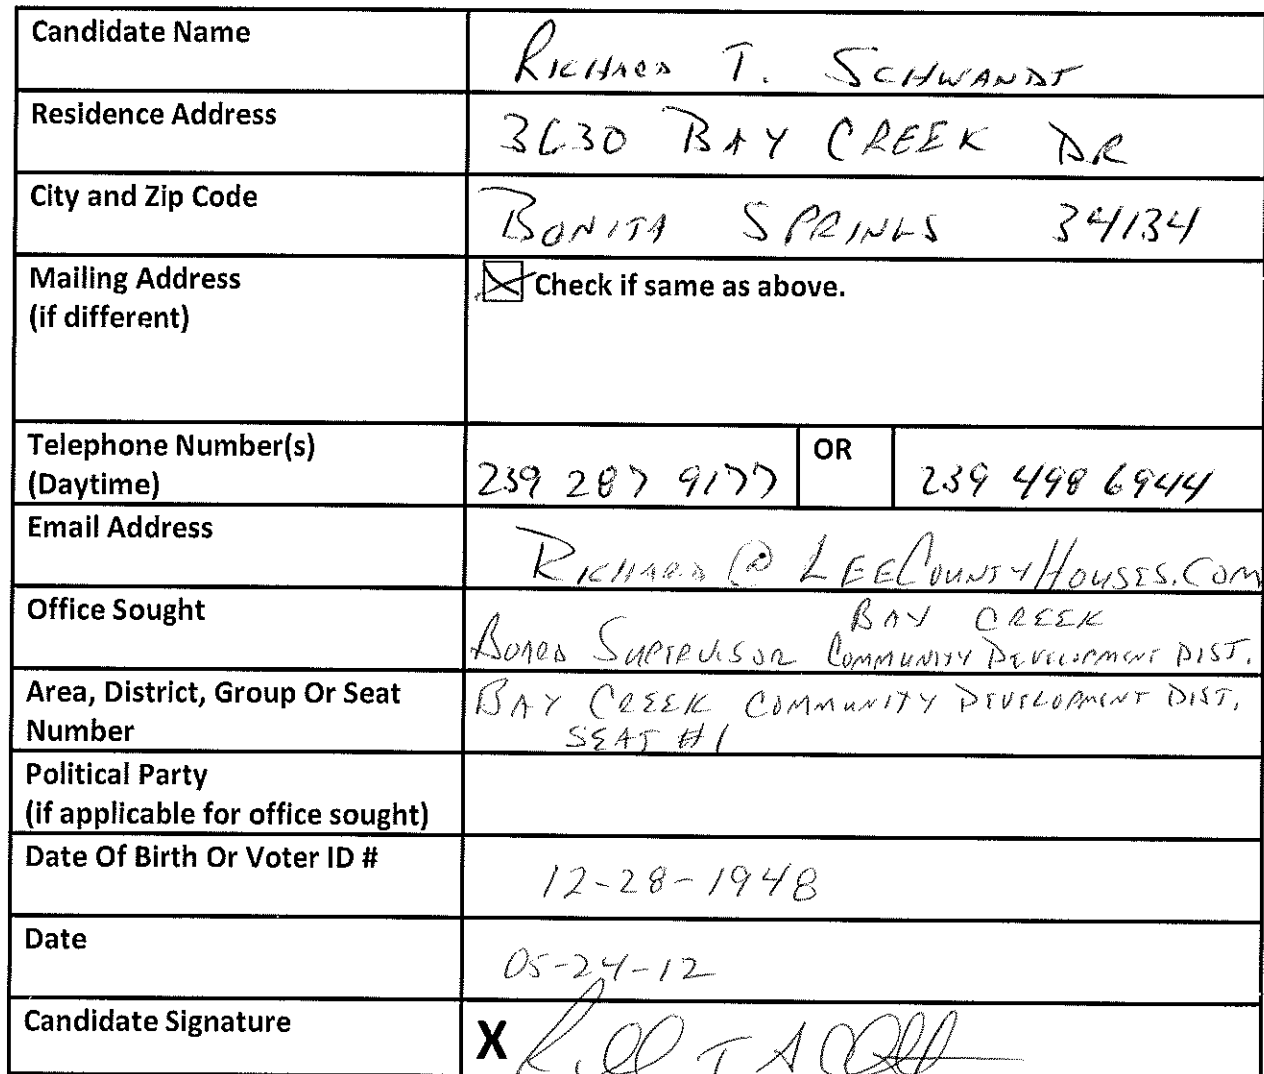 Candidate Name
RICHARD T. SCHWANDT
Residence Address
3630 BAY CREEK DR
City and Zip Code
BONITA SPRINGS 34134
Mailing Address
(if different)
Check if same as above.
Telephone Number(s)
(Daytime)
239 287 9177
OR
239 498 6944
Email Address
RICHARD @ LEECOUNTYHOUSES.COM
Office Sought
BAY CREEK
BOARD SUPERVISOR COMMUNITY DEVELOPMENT DIST.
Area, District, Group Or Seat
Number
BAY CREEK COMMUNITY DEVELOPMENT DIST.
SEAT #1
Political Party
(if applicable for office sought)
Date Of Birth Or Voter ID #
12-28-1948
Date
05-24-12
Candidate Signature
X